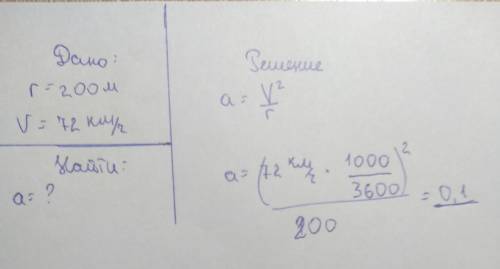 Дано:
r = 200 м
V = 72 км/ч
Найти:
a = ?
Решение
a = V²/r
a = (72 км/ч · 1000/3600)²/200 = 0,1